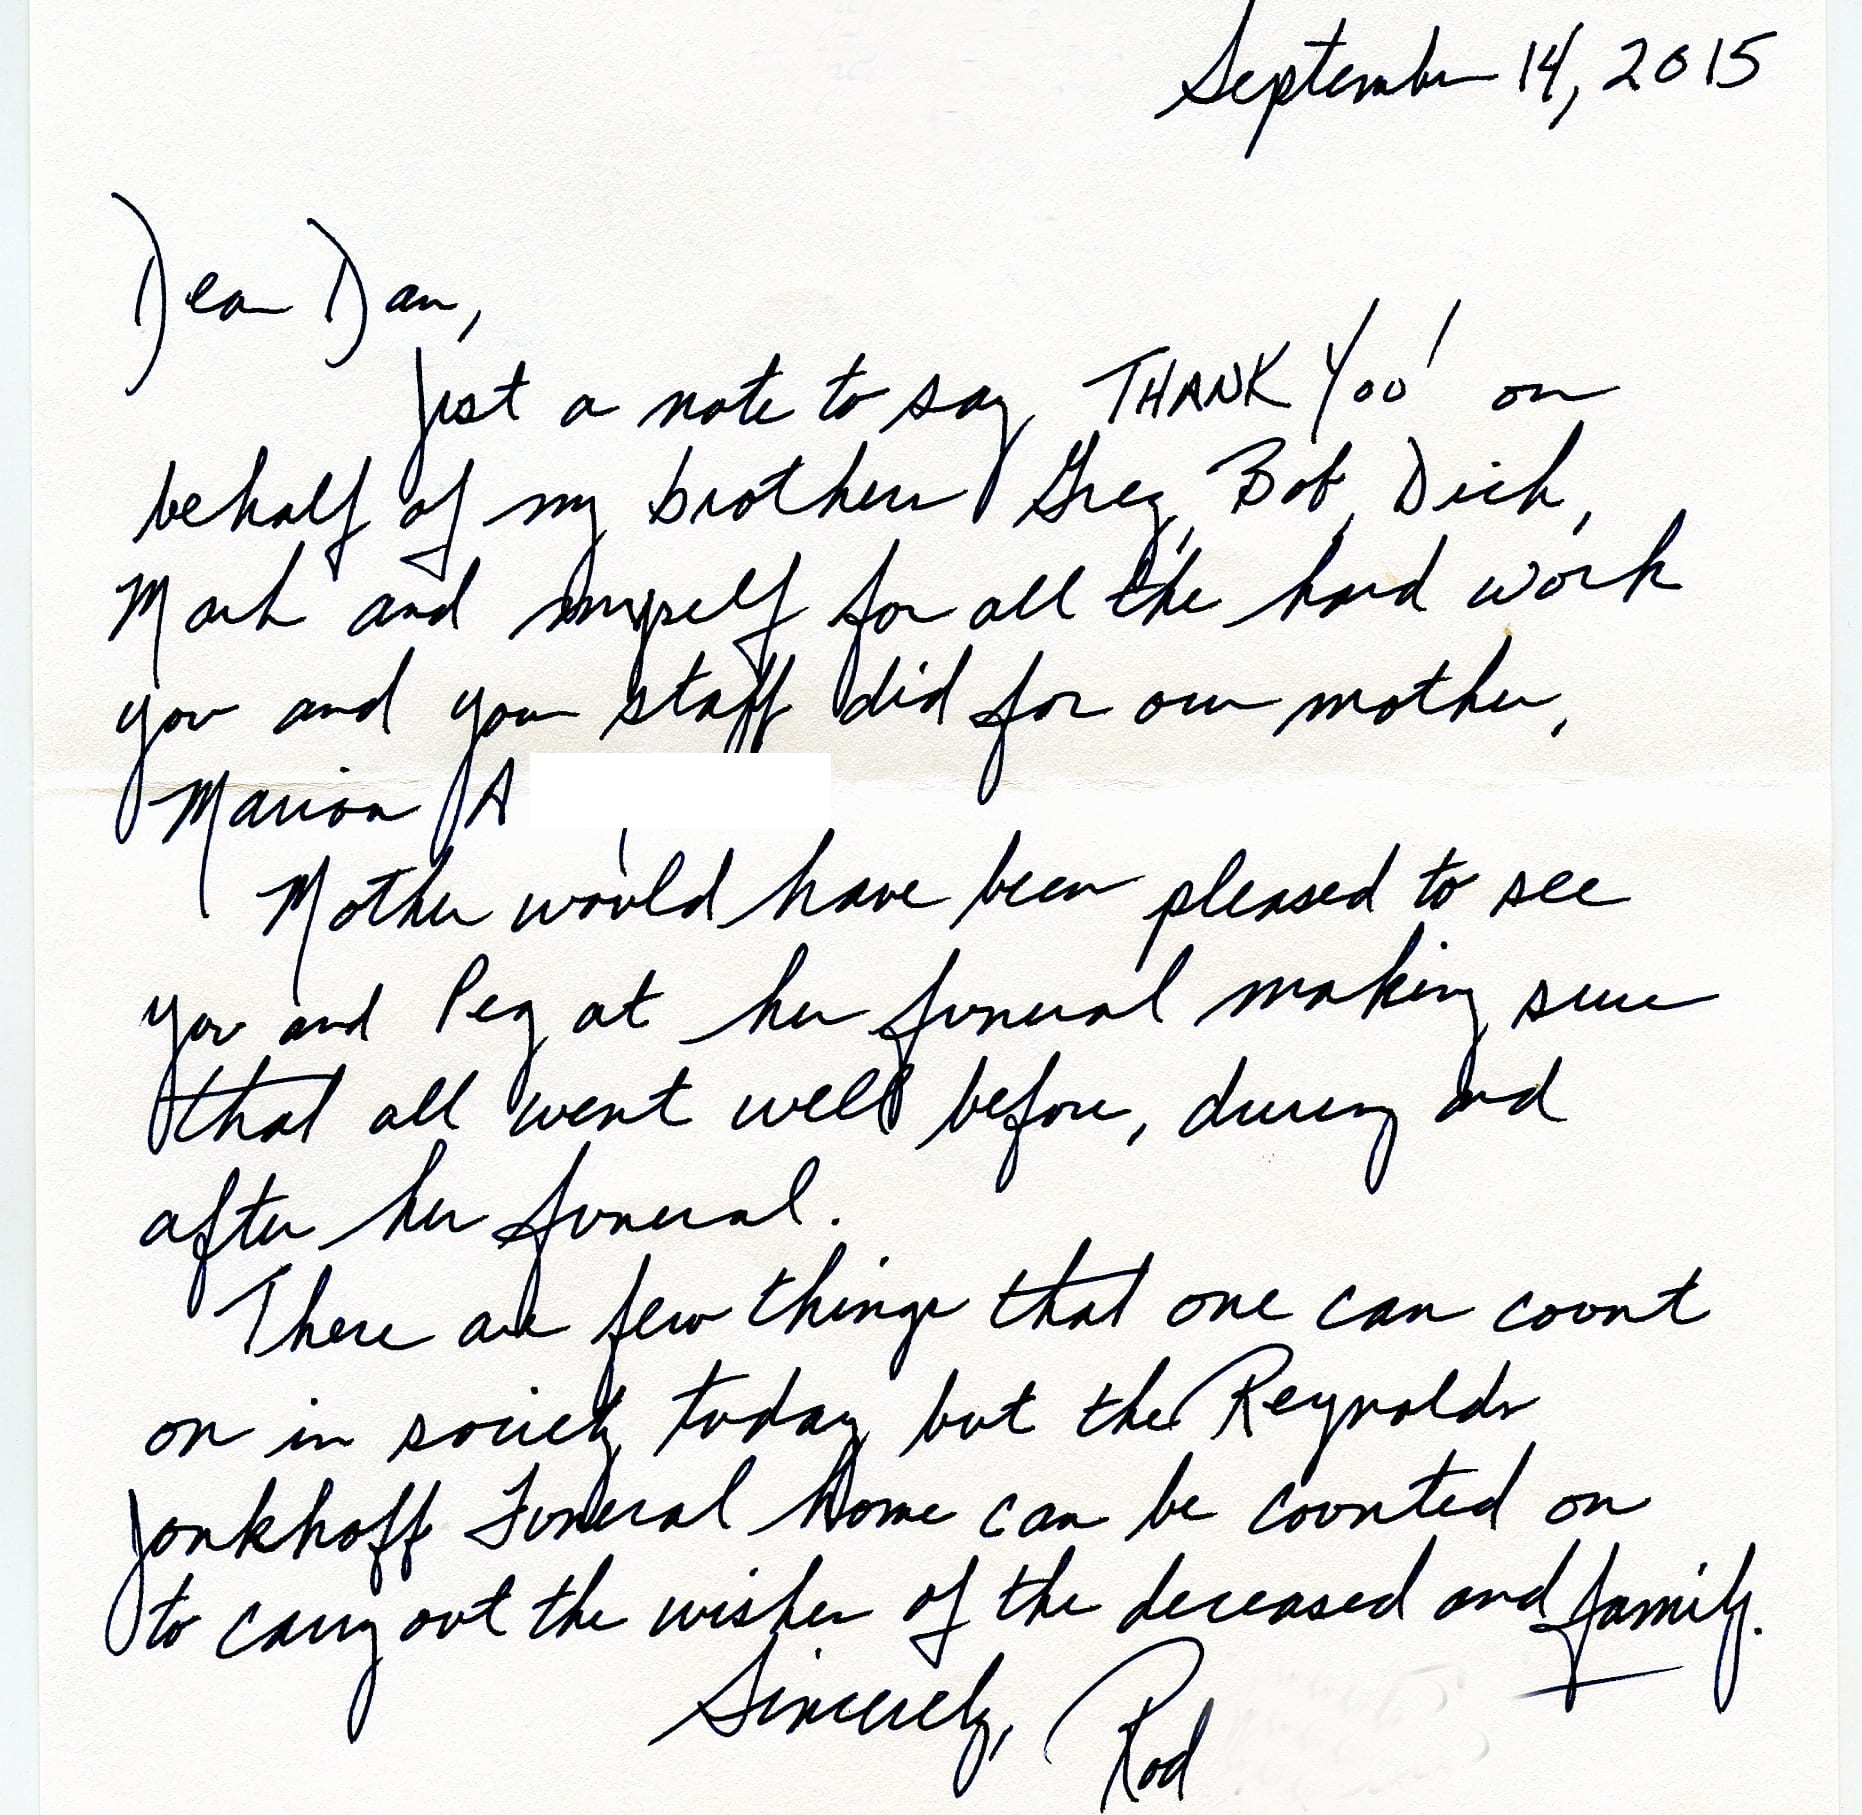 September 14, 2015
Dear Dan,
Just a note to say THANK YOU! on
behalf of my brothers Greg, Bob, Dick,
Mark and myself for all the hard work
you and your staff did for our mother,
Marion A
Mother would have been pleased to see
you and Peg at her funeral making sure
that all went well before, during and
after her funeral.
There are few things that one can count
on in society today but the Reynolds
Jonkhoff Funeral Home can be counted on
to carry out the wishes of the deceased and family.
Sincerely, Rod